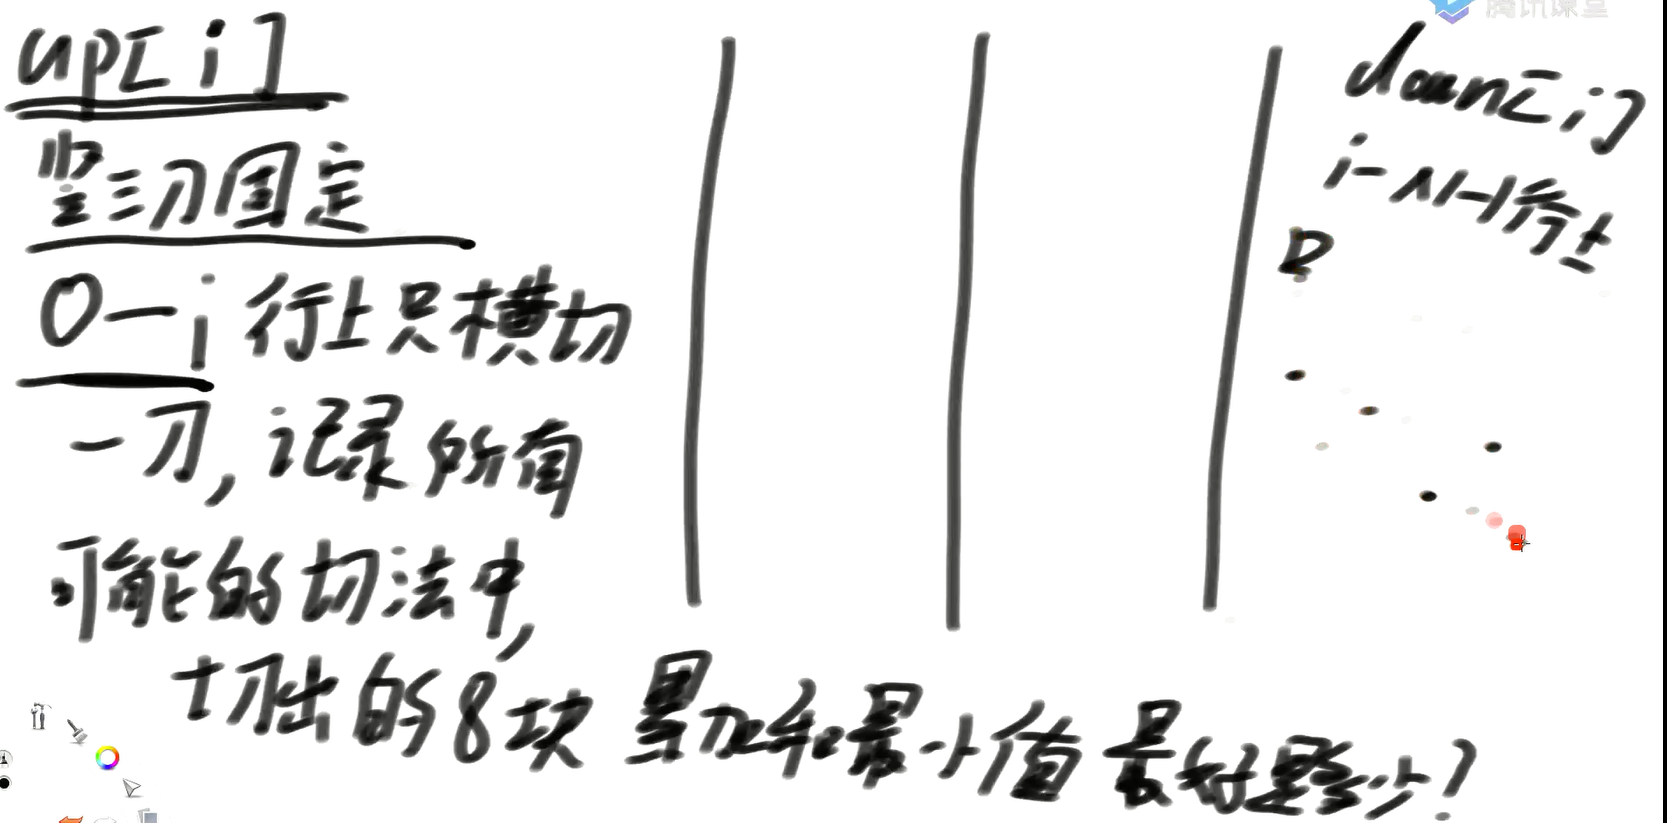 up[i]
竖三刀固定
0-i 行上只横切
一刀,记录所有
可能的切法中,
切出的8块 累加和最小值 最好是多少?
down[i]
i-N-1行上
腾讯课堂